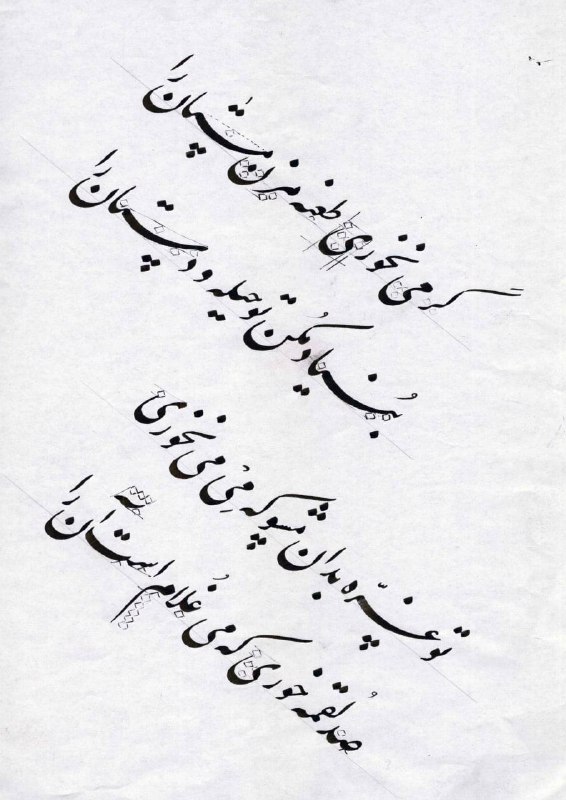 گر می نخوری طعنه مزن مستان را
بُنیاد مکُن تو حیله و دستان را
تو غرّه بدان مشو که مِی می نخوری
صد لُقمه خوری که می غُلام است آن را